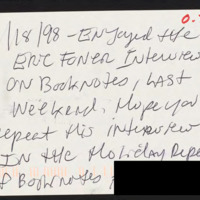 0.
/18/98 - Enjoyed the
Eric Foner Interview
on Booknotes, Last
Weekend. Hope you
repeat this interview
IN the Holiday Repe
f Booknotes